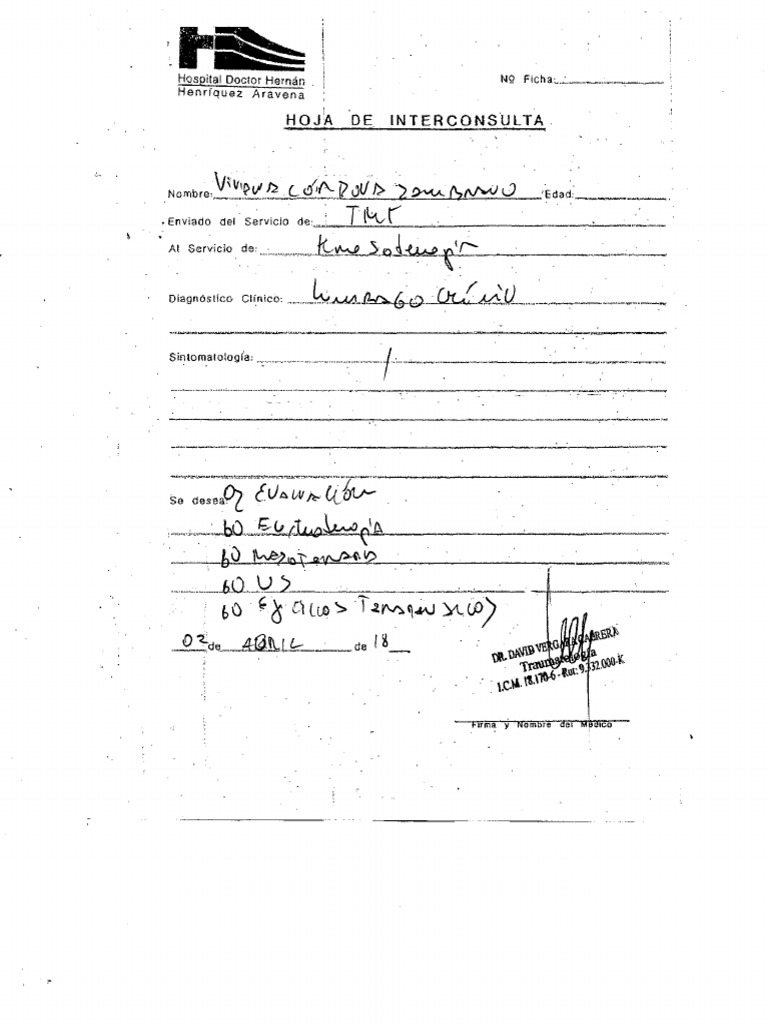 Hospital Doctor Hernán
Henríquez Aravena
Nº Ficha:
HOJA DE INTERCONSULTA
Nombre: Viviana Córdova Zambrano Edad:
Enviado del Servicio de: TMT
Al Servicio de: Kinesoterapia
Diagnóstico Clínico: Lumbago Crónico
Sintomatología: /
Se desea: Evaluación
60 Electroterapia
60 Masoterapia
60 US
60 Ejercicios Terapeuticos
02 de ABRIL de 18
DR. DAVID VERGARA CABRERA
Traumatología
I.C.M. 18.170-6 - Rut: 9.332.000-K
Firma y Nombre del Médico